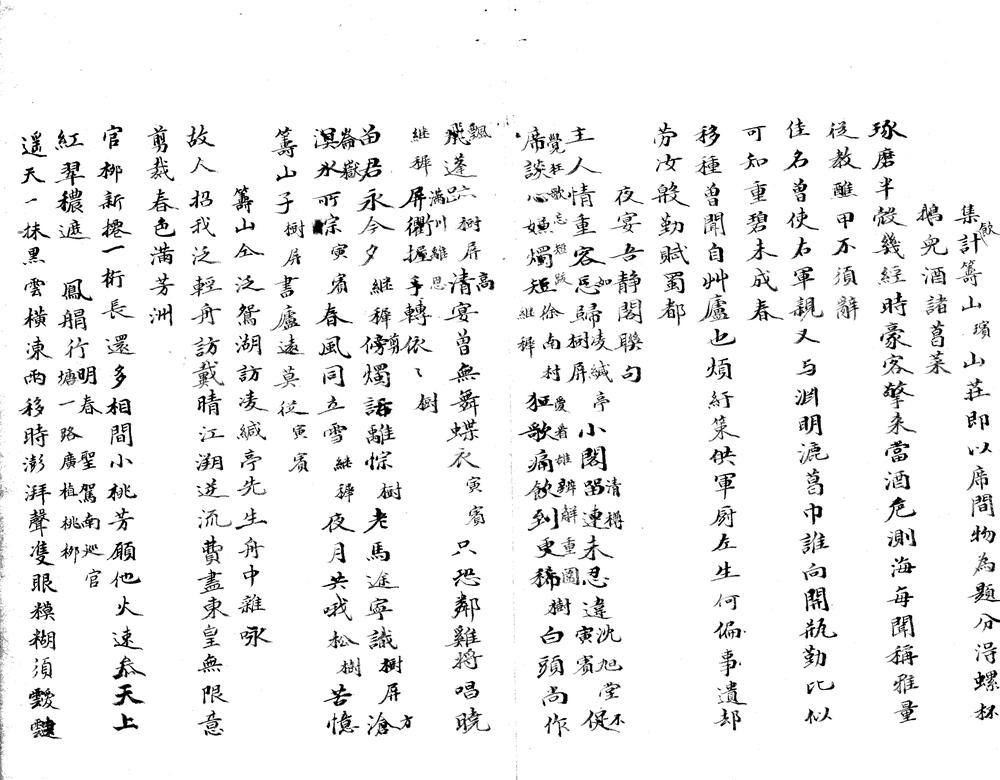 集飲計籌山璸山莊即以席間物為題分得螺杯
鵝兒酒諸菖菜
琢磨半殼幾經時豪客擎來當酒危測海每聞稱雅量
從教醮甲不須辭
佳名曾使右軍親又与淵明漉菖巾誰向開瓶勤比似
可知重碧未成春
移種曾聞自艸廬也煩紆策供軍厨左生何偏事遺却
劳汝般勤賦蜀都
夜宴吾静閣聯句
主人情重客忘歸樹屏小閣留連未忍違寅賓促
席談心嫌燭短継稺狂歌痛飲到更稀樹白頭尚作
飛蓬樹屏清宴曾無舞蝶衣寅賓只恐鄰雞將唱曉
継稺屏衢握手轉依〻樹
苗君永今夕継稺傍燭話離悰樹老馬途寧識樹屏滄
溟水可寅賓春風同立雪継稺夜月共哦松樹苦憶
籌山子樹屏書廬遠莫從寅賓
籌山仝泛鴛湖訪凌緘亭先生舟中雜咏
故人招我泛輕舟訪戴晴江溯逆流費盡東皇無限意
剪裁春色滿芳洲
官栁新攖一桁長還多相間小桃芳願他火速叅天上
紅翠穠遮鳳艒行明春聖駕南廵官塘一路廣植桃栁
遥天一抹黑雲橫涷雨移時澎湃聲隻眼糢糊須靉靆